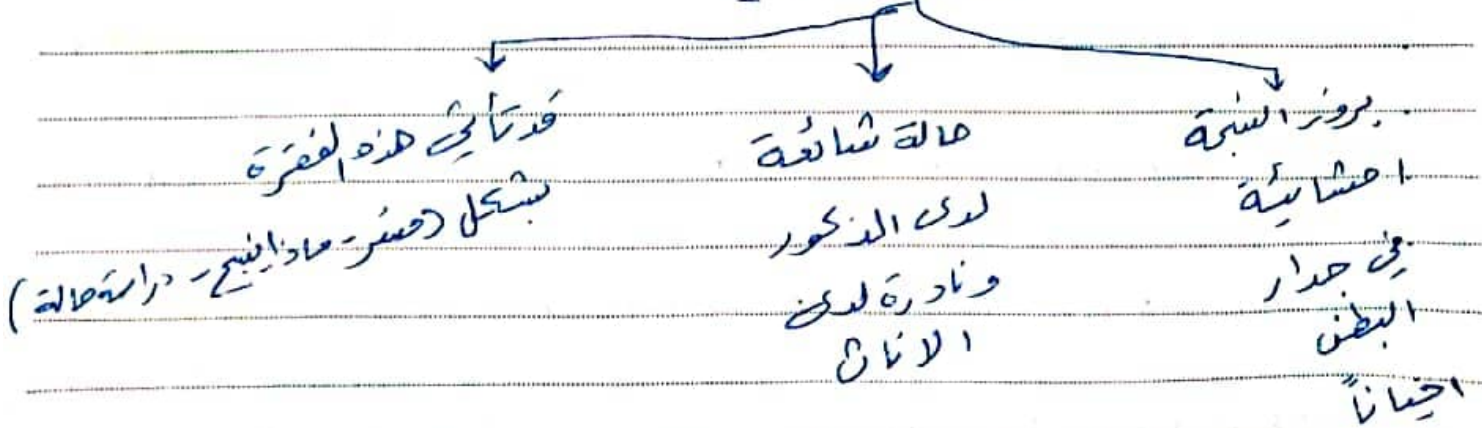 بروز انسجة
احشائية
في جدار
البطن
احياناً
حالة شائعة
لدى الذكور
ونادرة لدى
الاناث
قد تأتي هذه الفقرة
بشكل (فسر - ماذا ينتج - دراسة حالة)